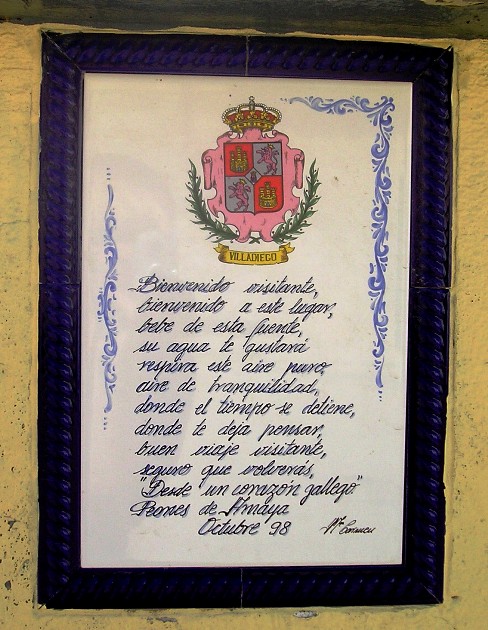 VILLADIEGO
Bienvenido visitante,
bienvenido a este lugar,
bebe de esta fuente,
su agua te gustará
respira este aire puro
aire de tranquilidad,
donde el tiempo se detiene,
donde te deja pensar,
buen viaje visitante,
seguro que volverás,
"Desde un corazón gallego"
Peones de Amaya
Octubre 98
Mª Carmen